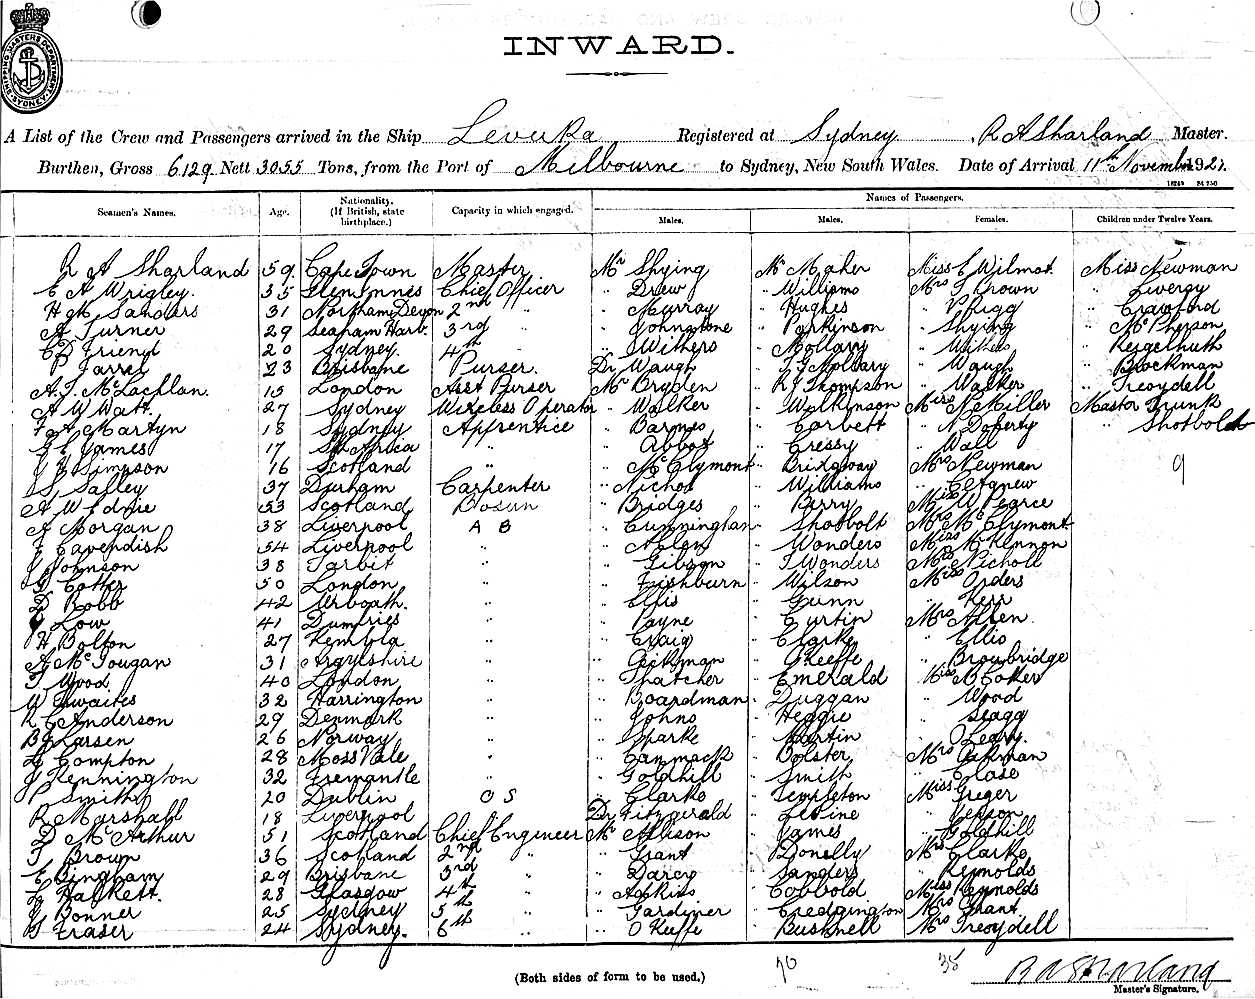 SHIPPING MASTER'S DEPARTMENT SYDNEY
INWARD.
A List of the Crew and Passengers arrived in the Ship Levuka Registered at Sydney, R A Sharland Master.
Burthen, Gross 6129 Nett 3055 Tons, from the Port of Milbourne to Sydney, New South Wales. Date of Arrival 11th November 1921.
Seamen's Names. Age. Nationality. (If British, state birthplace.) Capacity in which engaged. Names of Passengers.
Males. Males. Females. Children under Twelve Years.
R A Sharland 59 Cape Town Master Mr Shying Mr Maher Miss E Wilmot Miss Newman
E A Wrigley. 35 Glen Innes Chief Officer " Drew " Williams Mrs J Brown " Livergy
H M Sanders 31 Northam Devon 2nd " " Murray " Hughes " Phigg " Crawford
A Turner 29 Seaham Harb. 3rd " " Johnstone " Parkinson " Shying " McPherson
C D Friend 20 Sydney. 4th " " Withers " Mollarry " Withers " Reigelhuth
P Farrel 23 Brisbane Purser. Dr Waugh " " Waugh " Brockman
A. J. McLachlan. 15 London Asst Purser Mr Bryden " R J Thompson " Walker " Treoydell
A W Watt. 27 Sydney Wireless Operator " Walker " Walkinson Miss N Miller Master Trunk
F A Martyn 18 Sydney Apprentice " Barnes " Corbett " N Doherty " Shotbolt
James 17 Sth Africa " " Abbot " Cressy " Wall
Simpson 16 Scotland " " McClymont " Bridgway Mrs Newman 9
S Salley 37 Durham Carpenter " Nichol " Williams " C Agnew
A W Ednie 53 Scotland Bosun " Bridges " Berry Miss W Pearce
A Morgan 38 Liverpool A B " Cunningham " Shotbolt Mrs McClymont
J Cavendish 54 Liverpool " " Allen " Wonders Miss McKennon
J Johnson 38 Tarbit " " Gibson " J Wonders Mrs Nicholl
G Cotter 50 London " " Fishburn " Wilson Miss Orders
D Robb 42 Arboath. " " Ellis " Gunn " Kerr
Low 41 Dumfries " " Payne " Curtin Mrs Allen
H Bolton 27 Kembla " " Craig " Clarke " Ellis
A McDougan 31 Argylshire " " Aickman " Okeeffe " Browbridge
T Wood 40 London " " Thatcher " Emerald Miss B Coker
W Thwaites 32 Harrington " " Boardman " Duggan " Wood
R C Anderson 29 Denmark " " Johns " Heggie " Stagg
B Larsen 26 Norway " " Sparke " Martin " O'Leary.
L Compton 28 Moss Vale " " Cammack " Bolster Mrs Aikman
J Kennington 32 Fremantle " " Goldhill " Smith " Clase
P Smith 20 Dublin O S " Clarke " Templeton Miss Greger
R Marshall 18 Liverpool " Dr Fitzgirald " Levine " Jepson
D McArthur 51 Scotland Chief Engineer Mr Allison " James " Goldhill
T Brown 36 Scotland 2nd " " Grant " Donelly Mrs Clarke
E Bingham 29 Brisbane 3rd " " Darcy " Sanders " Reynolds
L Halkett. 28 Glasgow 4th " " Adkins " Cobbold Miss Reynolds
G Bonner 25 Sydney 5th " " Gardiner " Credgington Mrs Grant
G Fraser 24 Sydney. 6th " " O'Keeffe " Bushnell Mrs Treoydell
(Both sides of form to be used.) 70 35 R A Sharland
Master's Signature.